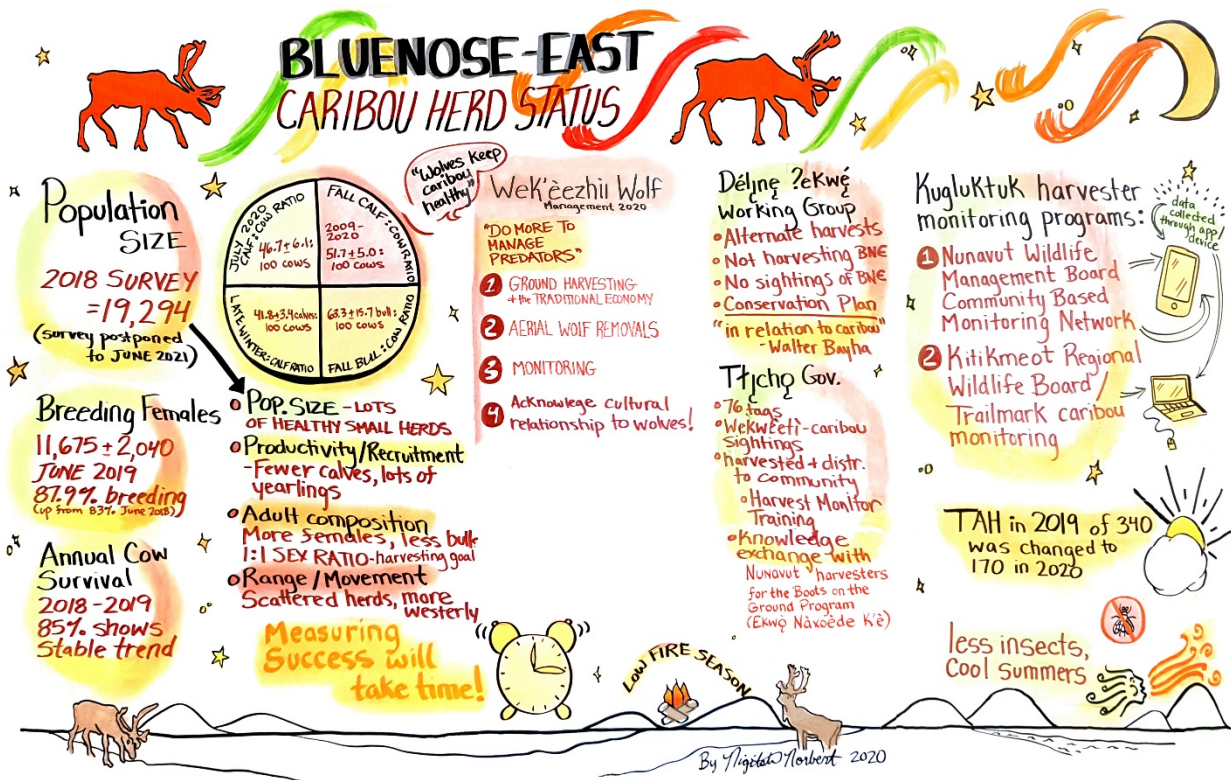 BLUENOSE-EAST
CARIBOU HERD STATUS
Population
SIZE
2018 SURVEY
=19,294
(survey postponed
to JUNE 2021)
Breeding Females
11,675 ± 2,040
JUNE 2019
87.9% breeding
(up from 83% June 2018)
Annual Cow
Survival
2018-2019
85% shows
Stable trend
JULY 2020
CALF:COW RATIO
46.7±6.1:
100 COWS
FALL CALF:COW RATIO
2009-
2020
51.7±5.0:
100 COWS
LATE WINTER:CALF RATIO
41.8±3.4 calves:
100 COWS
FALL BULL:COW RATIO
63.3±15.7 bull:
100 COWS
"Wolves Keep
caribou
healthy"
POP. SIZE - LOTS
OF HEALTHY SMALL HERDS
Productivity/Recruitment
-Fewer calves, lots of
yearlings
Adult composition
More females, less bulls
1:1 SEX RATIO-harvesting goal
Range/Movement
Scattered herds, more
westerly
Measuring
Success will
take time!
Wek'èezhìi Wolf
Management 2020
"DO MORE TO
MANAGE
PREDATORS"
1 GROUND HARVESTING
+ the TRADITIONAL ECONOMY
2 AERIAL WOLF REMOVALS
3 MONITORING
4 Acknowlege cultural
relationship to wolves!
LOW FIRE SEASON
Délįnę ?ekwę́
Working Group
Alternate harvests
Not harvesting BNE
No sightings of BNE
Conservation Plan
"in relation to caribou"
-Walter Bayha
Tłįchǫ Gov.
76 tags
Wekweètì-caribou
sightings
harvested + distr.
to community
Harvest Monitor
Training
Knowledge
exchange with
Nunavut harvesters
for the Boots on the
Ground Program
(Ekwǫ̀ Nàxoède K'è)
Kugluktuk harvester
monitoring programs:
data
collected
through app/
device
1 Nunavut Wildlife
Management Board
Community Based
Monitoring Network
2 Kitikmeot Regional
Wildlife Board/
Trailmark caribou
monitoring
TAH in 2019 of 340
was changed to
170 in 2020
less insects,
Cool summers
By Nigit'stil Norbert 2020